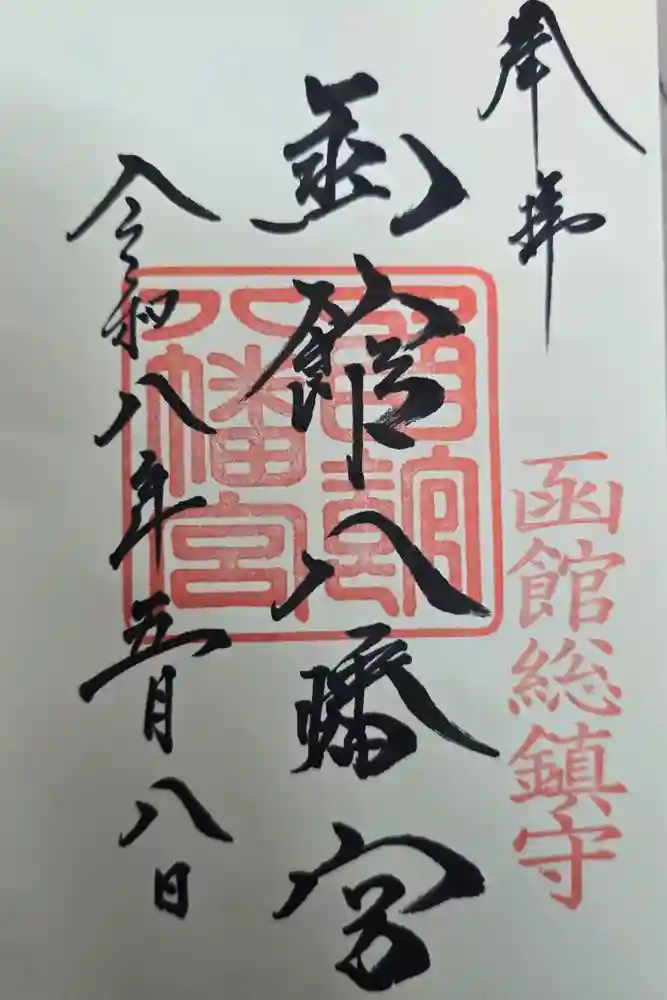 奉拝
函館総鎮守
函館八幡宮
函館八幡宮
令和八年五月八日